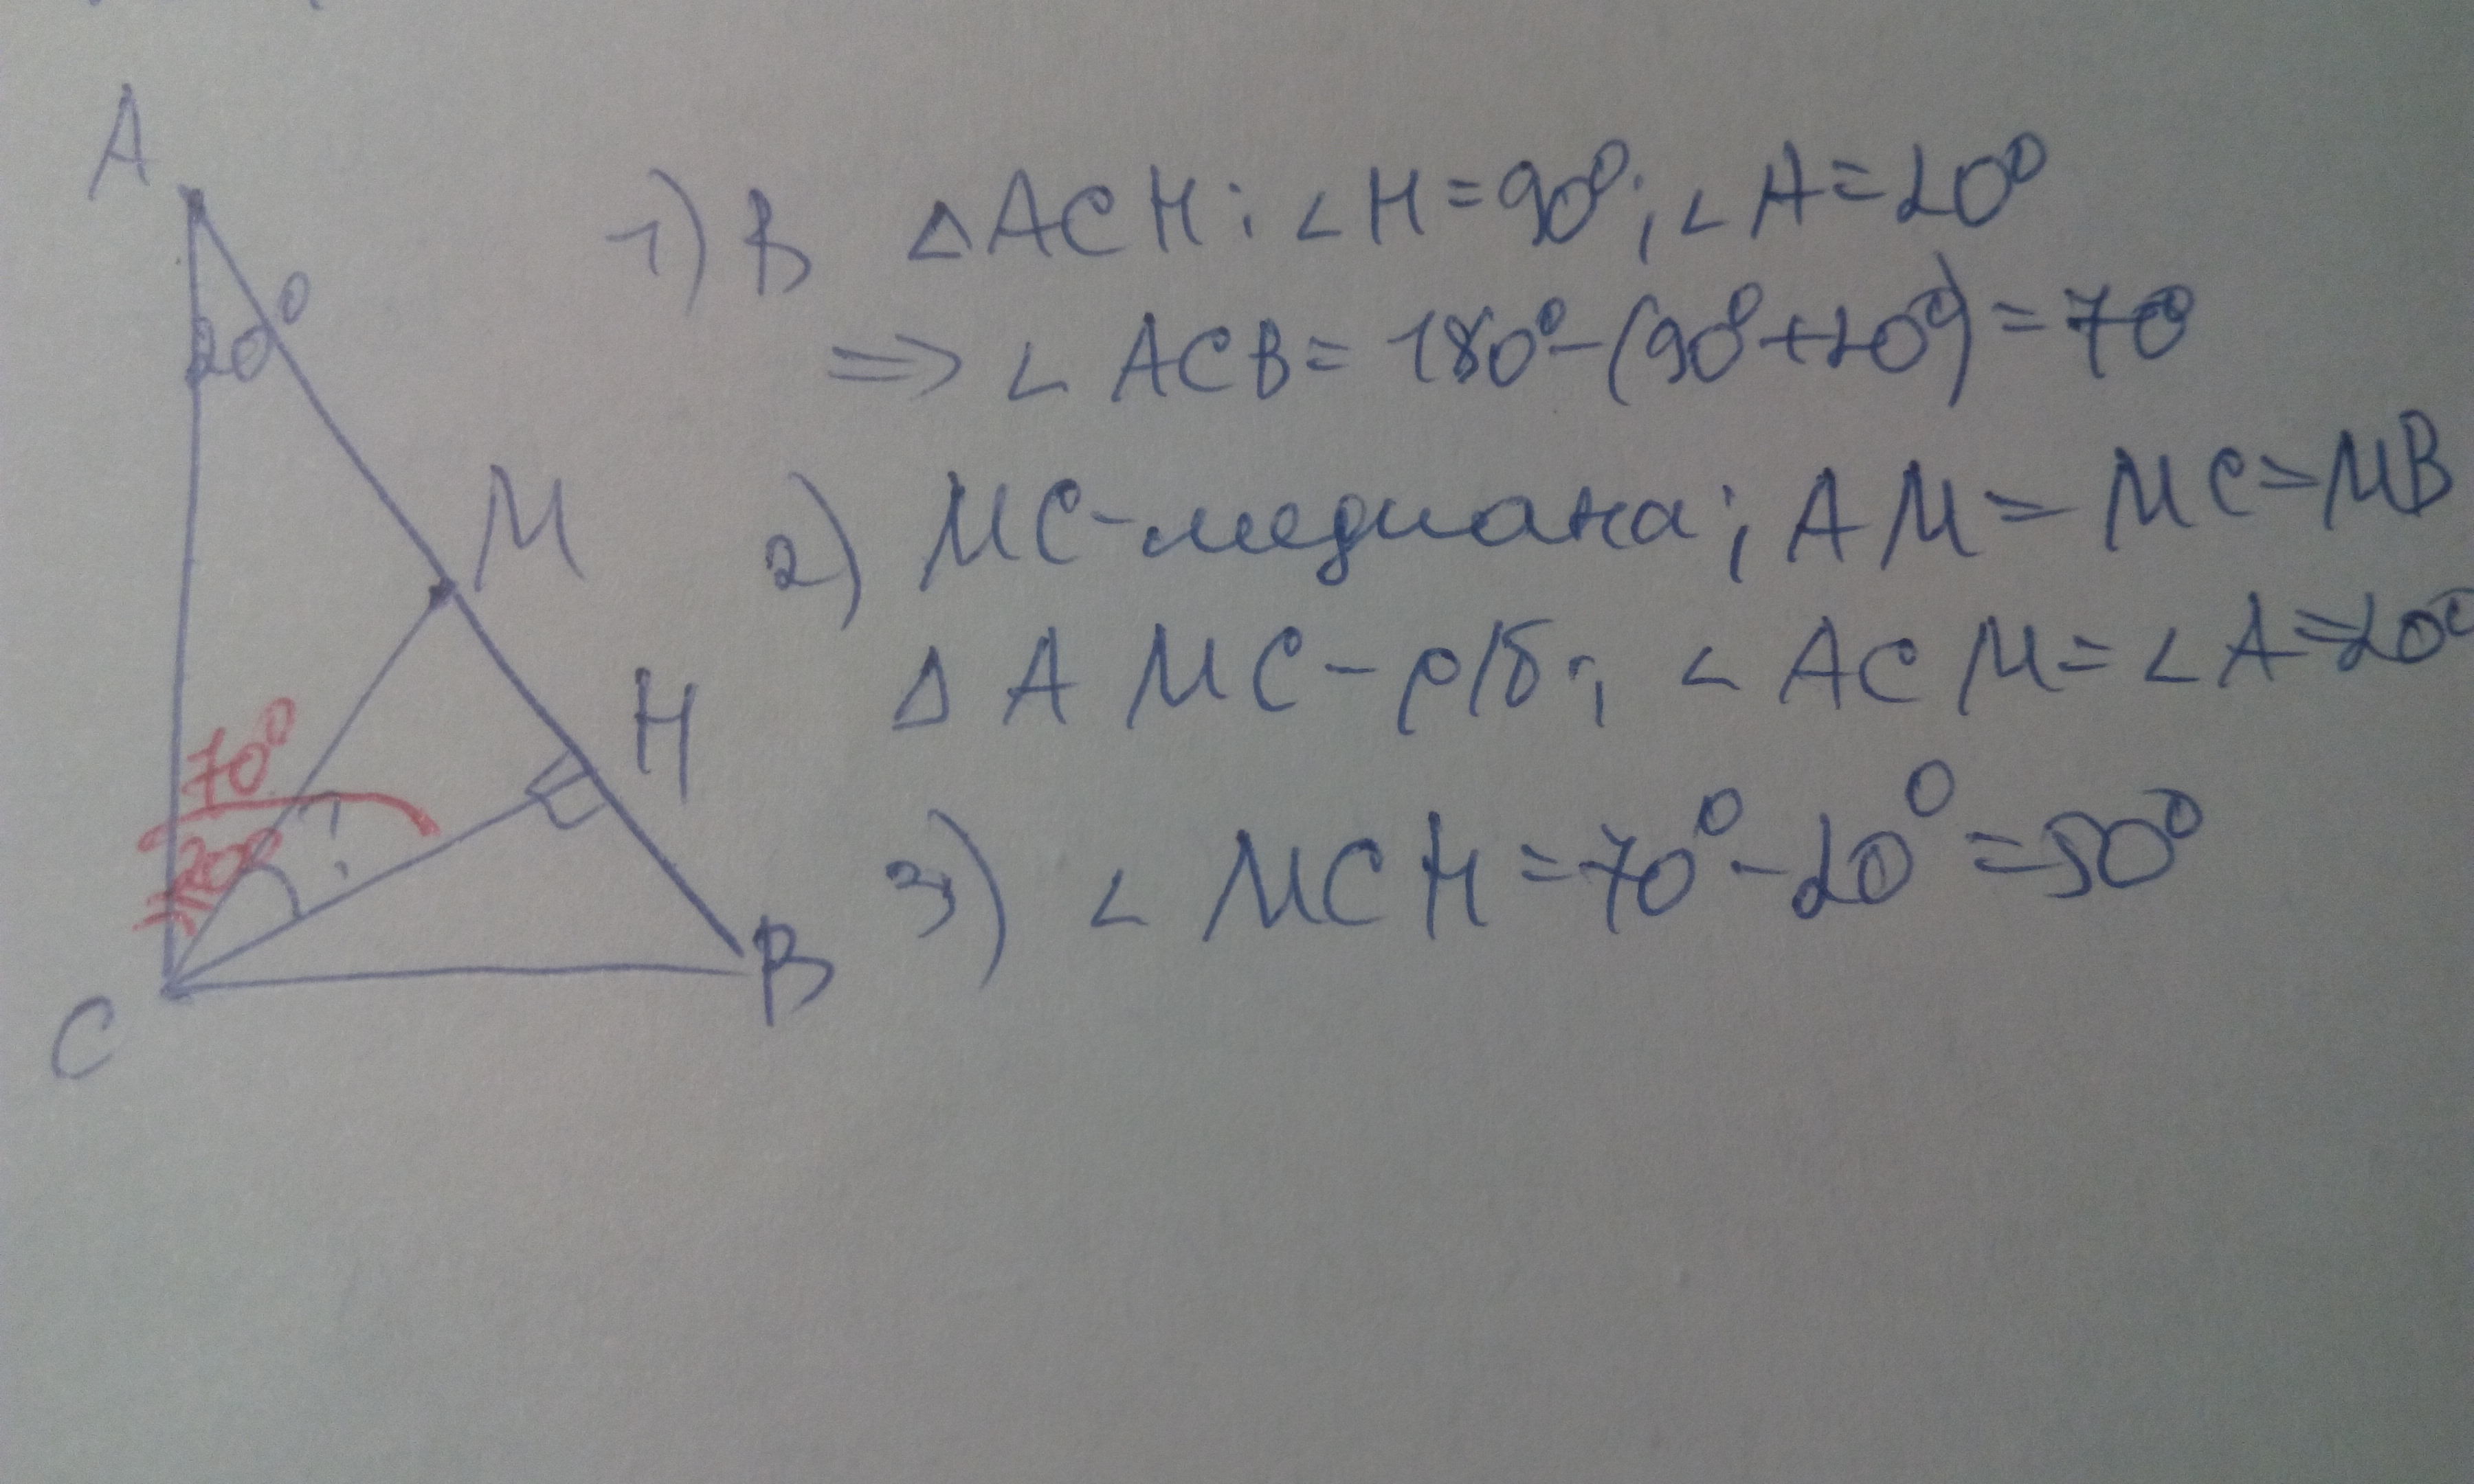 A
20⁰
M
H
70⁰
20⁰
?
C
B
1) В ∆ ACH: ∠H=90⁰; ∠A=20⁰
⇒ ∠ ACB= 180⁰-(90⁰+20⁰)=70
2) MC-медиана; AM=MC=MB
∆ AMC-р/б; ∠ ACM=∠A=20⁰
3) ∠ MCH=70⁰-20⁰=50⁰